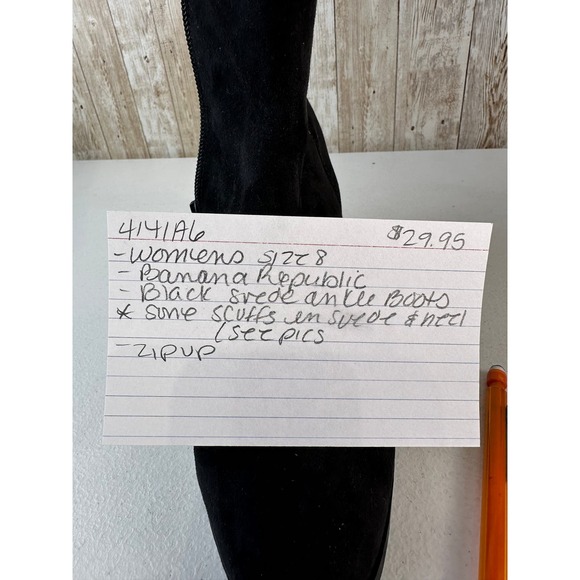 4141A6 $29.95
- Womens size 8
- Banana Republic
- Black svede ankle Boots
* some scuffs in svede & heel
(see pics
- zip up